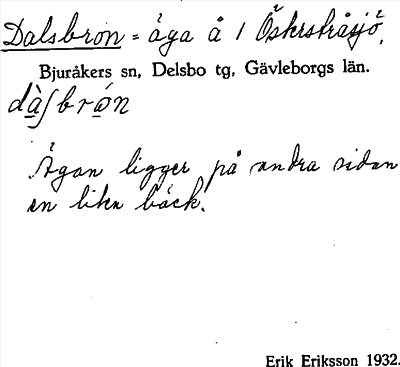 Dalsbron = äga å 1 Österstråsjö.
Bjuråkers sn, Delsbo tg, Gävleborgs län.
dàʃbrón
Ägan ligger på andra sidan
en liten bäck.
Erik Eriksson 1932.